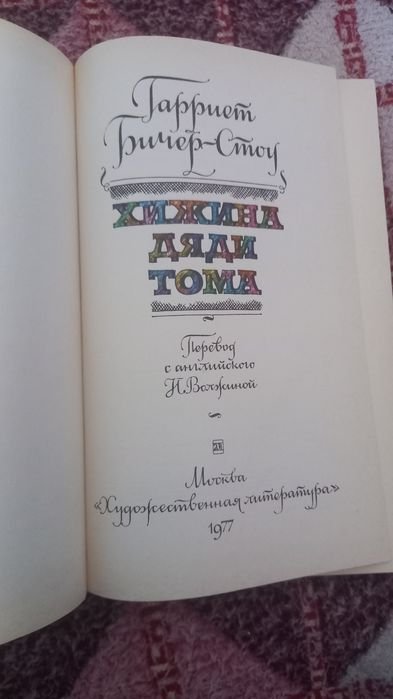 Гарриет
Бичер-Стоу
ХИЖИНА
ДЯДИ
ТОМА
Перевод
с английского
Н. Волжиной
Москва
«Художественная литература»
1977